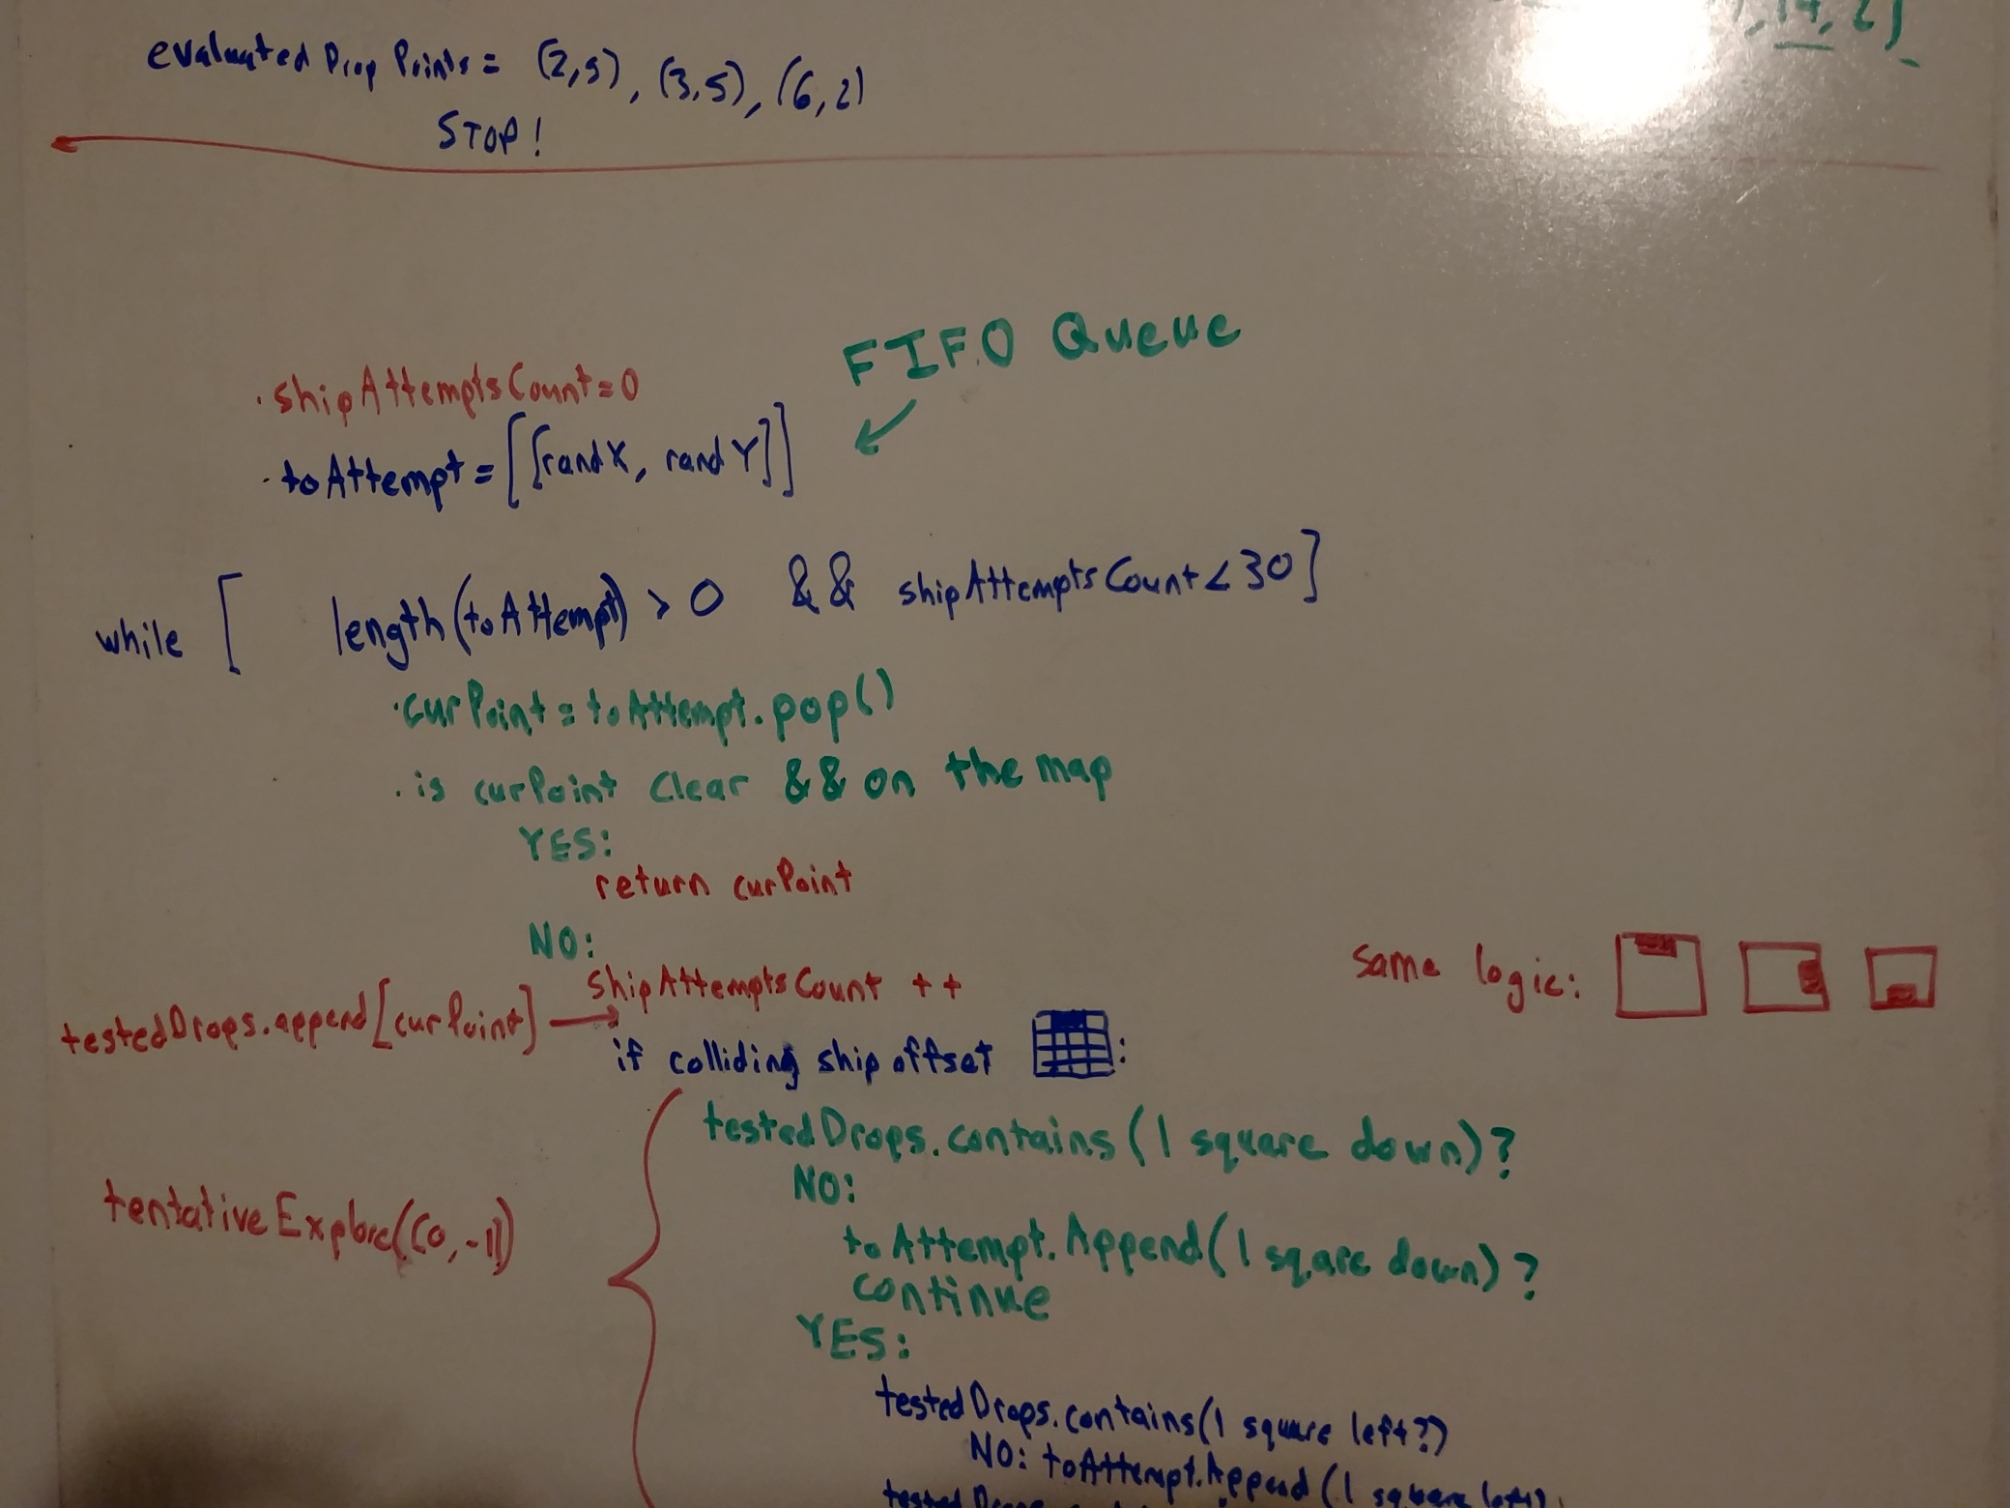 , 14, 2)
evaluated Drop Points = (2,5), (3,5), (6,2)
STOP!
FIFO Queue
· shipAttemptsCount=0
· toAttempt = [[randX, randY]]
while [ length(toAttempt) > 0 && shipAttemptsCount<30]
· curPoint = toAttempt.pop()
· is curPoint clear && on the map
YES:
return curPoint
NO:
same logic:
shipAttemptsCount ++
testedDrops.append[curPoint]
if colliding ship offset :
testedDrops.contains(1 square down)?
NO:
tentativeExplore((0,-1))
toAttempt.Append(1 sqare down)?
continue
YES:
testedDrops.contains(1 square left?)
NO: toAttempt.Append(1 square left)
tested